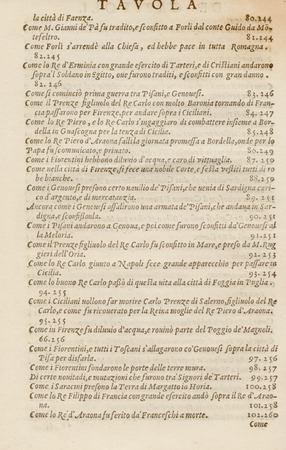 TAVOLA
la città di Faenza. 80.244
Come M. Gianni de' Pà fu tradito, e sconfitto a Forlì dal conte Guido da Mo-
tefeltro. 81.244
Come Forlì s'arrendè alla Chiesa, ed hebbe pace in tutta Romagna.
82.245
Come lo Re d'Erminia con grande esercito di Tarteri, e di Cristiani andarono
sopra'l Soldano in Egitto, ove furono traditi, e sconfitti con gran danno.
82.246
Come si cominciò prima guerra tra Pisani, e Genovesi. 83.246
Come il Prenze figliuolo del Re Carlo con molto Baronia tornando di Fran-
cia passarono per Firenze, per andare sopra i Ciciliani. 84.247
Come lo Re Piero, e lo Re Carlo s'ingaggiaro di combattere insieme a Bor-
della in Guascogna per la tenza di Cicilia. 85.248
Come lo Re Piero d'Araona fallì la giornata promessa a Bordello, onde per lo
Papa fu scommunicato, e privato. 86.249
Come i Fiorentini hebbono diluvio d'acqua, e caro di vittuaglia. 87.250
Come nella città di Firenze, si fece una nobile Corte, e festa vestiti tutti di ro
be bianche. 88.250
Come i Genovesi presono certo navilio de' Pisani, che venia di Sardigna carico
d'argento, e di mercatanzia. 89.250
Ancora come i Genovesi assalirono una armata de' Pisani, che andava in Sar-
digna, e sconfissonla. 90.251
Come i Pisani andarono a Genova, e poi come furono sconfitti da' Genovesi al
la Meloria. 91.251
Come il Prenze figliuolo del Re Carlo fu sconfitto in Mare, e preso da M. Rug
gieri dell'Oria. 92.253
Come lo Re Carlo giunto a Napoli fece grande apparecchio per passare in
Cicilia. 93.254
Come lo buono Re Carlo passò di questa vita alla città di Foggia in Puglia.
94.255
Come i Ciciliani vollono far morire Carlo Prenze di Salerno, figliuolo del Re
Carlo, e come fu ricoverato per la Reina moglie del Re Piero d'Araona.
95.255
Come in Firenze fu diluvio d'acqua, e rovinò parte del Poggio de' Magnoli.
66.256
Come i Fiorentini, e tutti i Toscani s'allegarono co' Genovesi sopra la città di
Pisa per disfarla. 97.256
Come i Fiorentini fondarono le porte delle terre mura. 98.257
Di certe novitadi, e mutazioni che furono tra Signori de' Tarteri. 99.257
Come i Saracini presono la Terra di Margatto in Horia. 100.258
Come lo Re Filippo di Francia con grande esercito andò sopra il Re d'Arao-
na. 101.258
Come lo Re d'Araona fu ferito da' Franceschi a morte. 102.260
Come